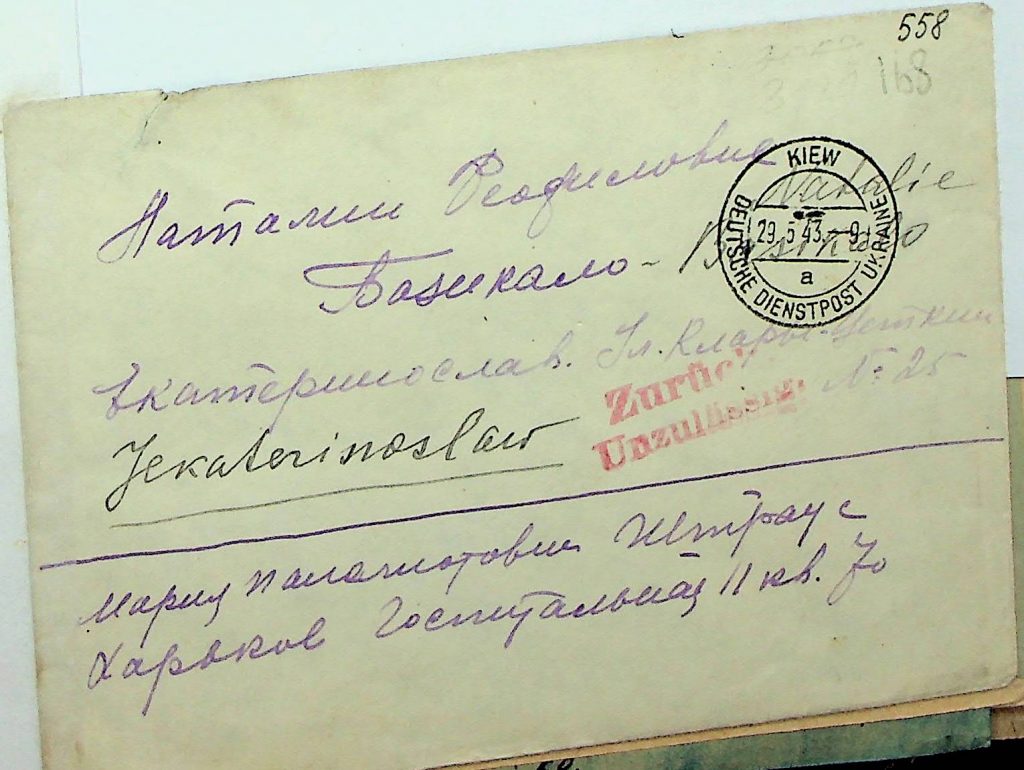 558
168
Наталии Феофиловне Natalie
Базикало - Basikalo
KIEW
29.5.43.-9
a
DEUTSCHE DIENSTPOST UKRAINE
Екатеринослав. Ул. Клары-Цеткин
№ 25
Zurück
Unzulässig.
Jekaterinoslaw
Мария Штраус
Харьков Госпитальная 11 кв. 70